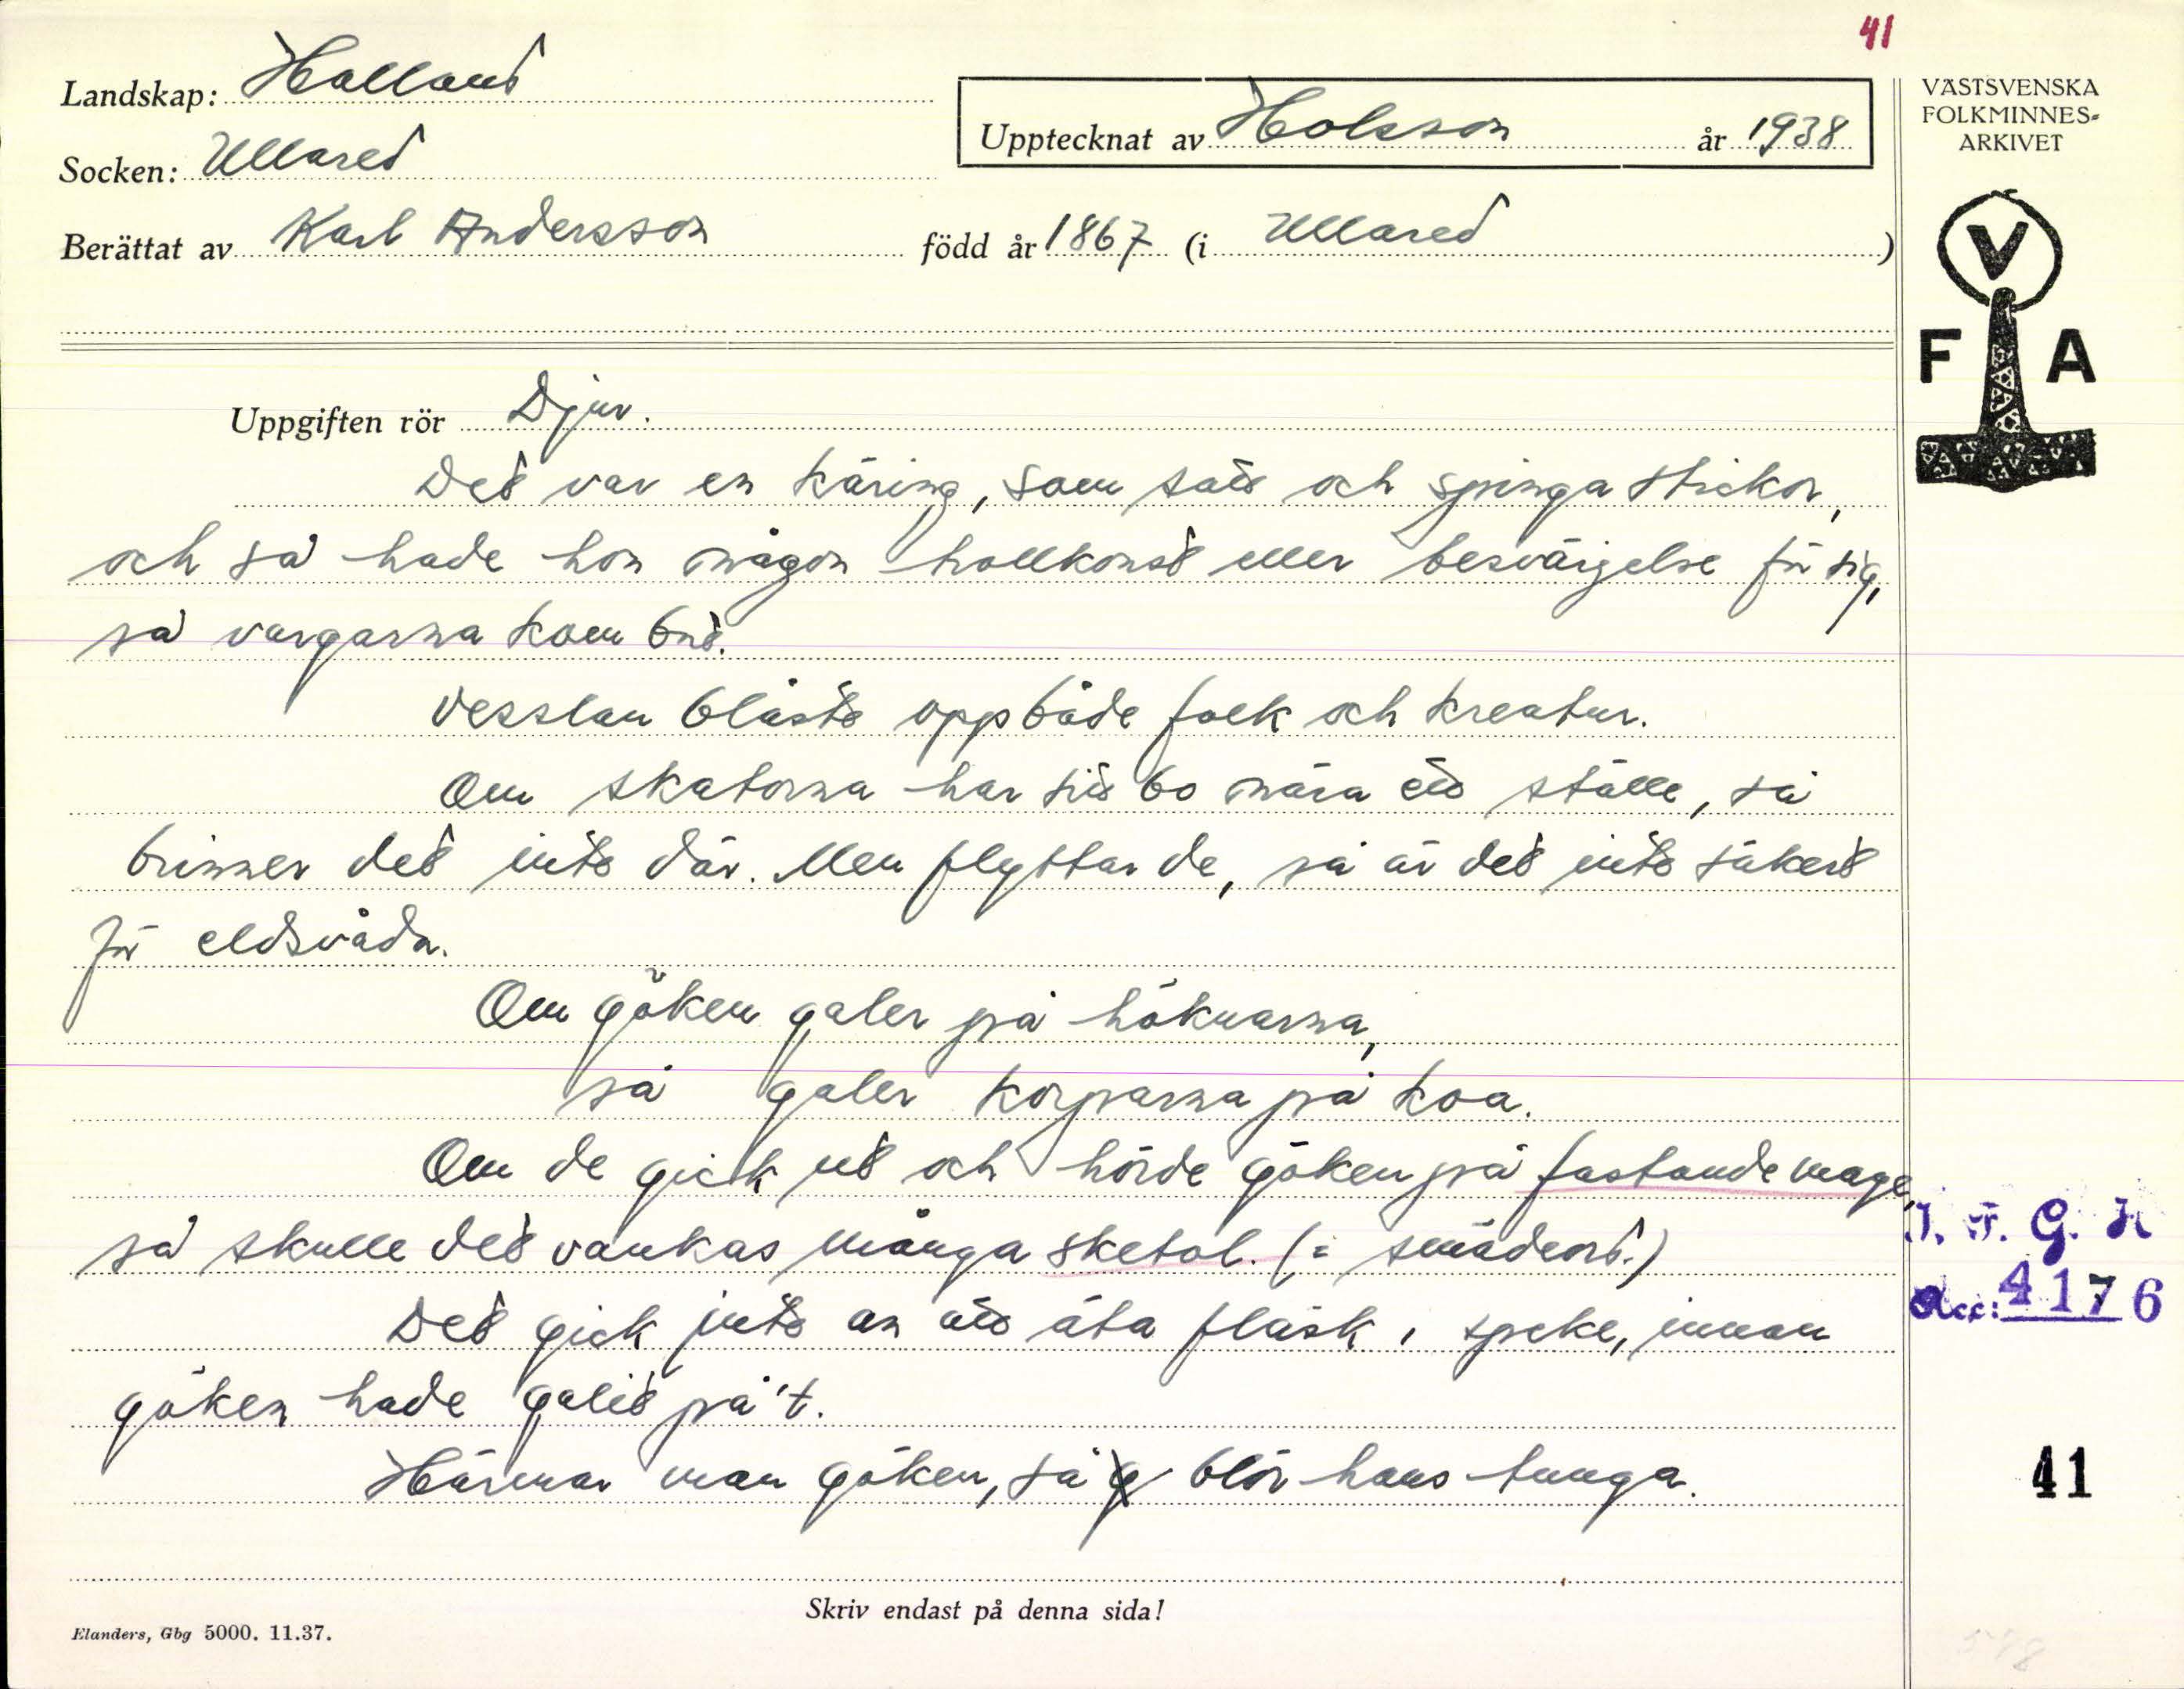 41
Landskap: Halland
Socken: Ullared
Upptecknat av Holsson år 1938
Berättat av Karl Andersson född år 1867 (i Ullared )
VÄSTSVENSKA
FOLKMINNES-
ARKIVET
V
F A
Uppgiften rör Djur.
Det var en käring, som satt och springa stickor,
och så hade hon någon trollkonst eller besvärjelse för sig,
så vargarna kom bort.
Vesslan blåste opp både folk och kreatur.
Om skatorna har sitt bo nära ett ställe, så
brinner det inte där. Men flyttar de, så är det inte säkert
för eldsvåda.
Om göken galer på höknarna,
så galer korparna på koa.
Om de gick ut och hörde göken på fastande mage,
så skulle det vankas många sketol. (= smädeord.)
Det gick inte an att äta fläsk, speke, innan
göken hade galit på't.
Härmar man göken, så blör hans tunga.
I. F. G. H
Acc: 4176
41
Skriv endast på denna sida!
Elanders, Gbg 5000. 11.37.